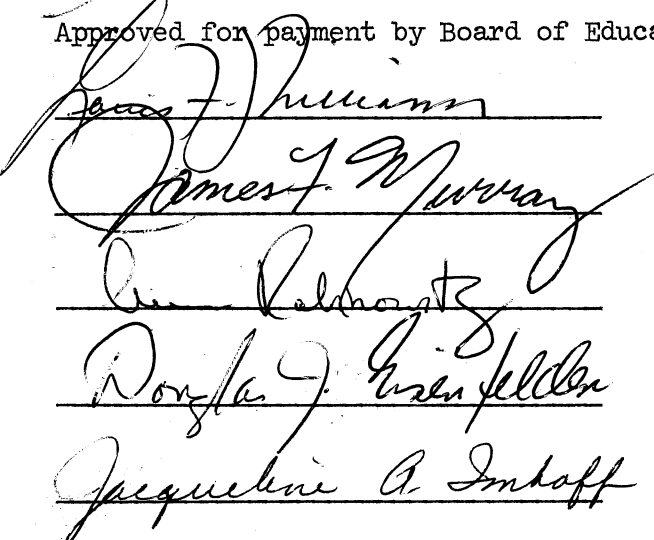 Approved for payment by Board of Educa
Louis F. Williams
James F. Murray
Douglas J. Eisenfelder
Jacqueline A. Imhoff